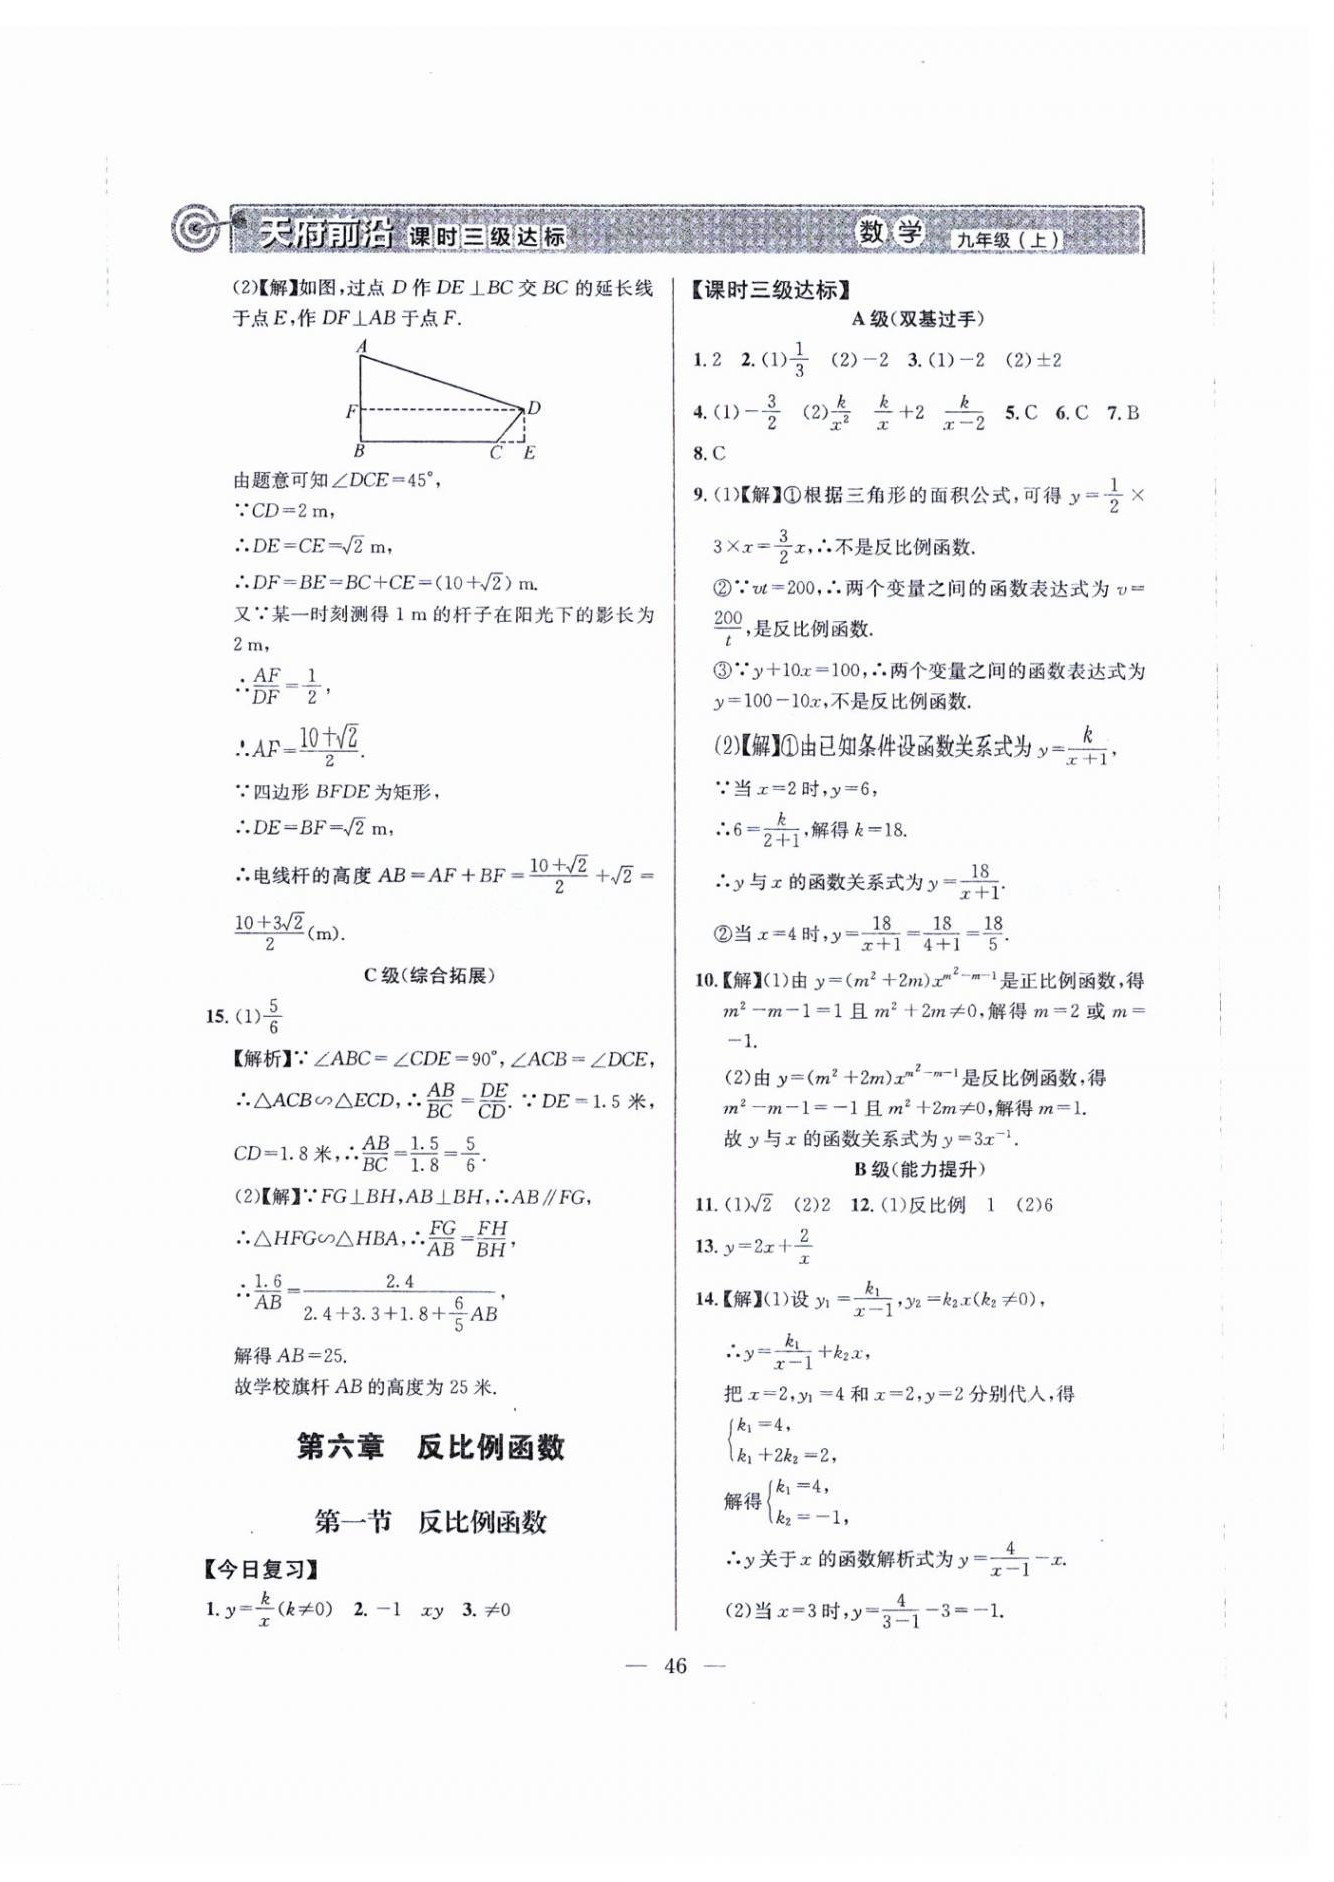 天府前沿 课时三级达标 数学 九年级(上)
(2)【解】如图,过点 D 作 DE⊥BC 交 BC 的延长线
于点 E,作 DF⊥AB 于点 F.
A
F D
B C E
由题意可知∠DCE=45°,
∵CD=2 m,
∴DE=CE=√2 m,
∴DF=BE=BC+CE=(10+√2) m.
又∵某一时刻测得 1 m 的杆子在阳光下的影长为
2 m,
∴AF/DF=1/2,
∴AF=(10+√2)/2.
∵四边形 BFDE 为矩形,
∴DE=BF=√2 m,
∴电线杆的高度 AB=AF+BF=(10+√2)/2+√2=
(10+3√2)/2(m).
C 级(综合拓展)
15. (1)5/6
【解析】∵∠ABC=∠CDE=90°,∠ACB=∠DCE,
∴△ACB∽△ECD,∴AB/BC=DE/CD. ∵DE=1.5 米,
CD=1.8 米,∴AB/BC=1.5/1.8=5/6.
(2)【解】∵FG⊥BH,AB⊥BH,∴AB∥FG,
∴△HFG∽△HBA,∴FG/AB=FH/BH,
∴1.6/AB=2.4/(2.4+3.3+1.8+6/5AB),
解得 AB=25.
故学校旗杆 AB 的高度为 25 米.
第六章 反比例函数
第一节 反比例函数
【今日复习】
1. y=k/x(k≠0) 2. −1 xy 3. ≠0
【课时三级达标】
A 级(双基过手)
1. 2 2. (1)1/3 (2)−2 3. (1)−2 (2)±2
4. (1)−3/2 (2)k/x² k/x+2 k/(x−2) 5. C 6. C 7. B
8. C
9. (1)【解】①根据三角形的面积公式,可得 y=1/2×
3×x=3/2x,∴不是反比例函数.
②∵vt=200,∴两个变量之间的函数表达式为 v=
200/t,是反比例函数.
③∵y+10x=100,∴两个变量之间的函数表达式为
y=100−10x,不是反比例函数.
(2)【解】①由已知条件设函数关系式为 y=k/(x+1),
∵当 x=2 时,y=6,
∴6=k/(2+1),解得 k=18.
∴y 与 x 的函数关系式为 y=18/(x+1).
②当 x=4 时,y=18/(x+1)=18/(4+1)=18/5.
10.【解】(1)由 y=(m²+2m)x^(m²−m−1)是正比例函数,得
m²−m−1=1 且 m²+2m≠0,解得 m=2 或 m=
−1.
(2)由 y=(m²+2m)x^(m²−m−1)是反比例函数,得
m²−m−1=−1 且 m²+2m≠0,解得 m=1.
故 y 与 x 的函数关系式为 y=3x⁻¹.
B 级(能力提升)
11. (1)√2 (2)2 12. (1)反比例 1 (2)6
13. y=2x+2/x
14.【解】(1)设 y₁=k₁/(x−1),y₂=k₂x(k₂≠0),
∴y=k₁/(x−1)+k₂x,
把 x=2,y₁=4 和 x=2,y=2 分别代人,得
{k₁=4,
k₁+2k₂=2,
解得{k₁=4,
k₂=−1,
∴y 关于 x 的函数解析式为 y=4/(x−1)−x.
(2)当 x=3 时,y=4/(3−1)−3=−1.
— 46 —